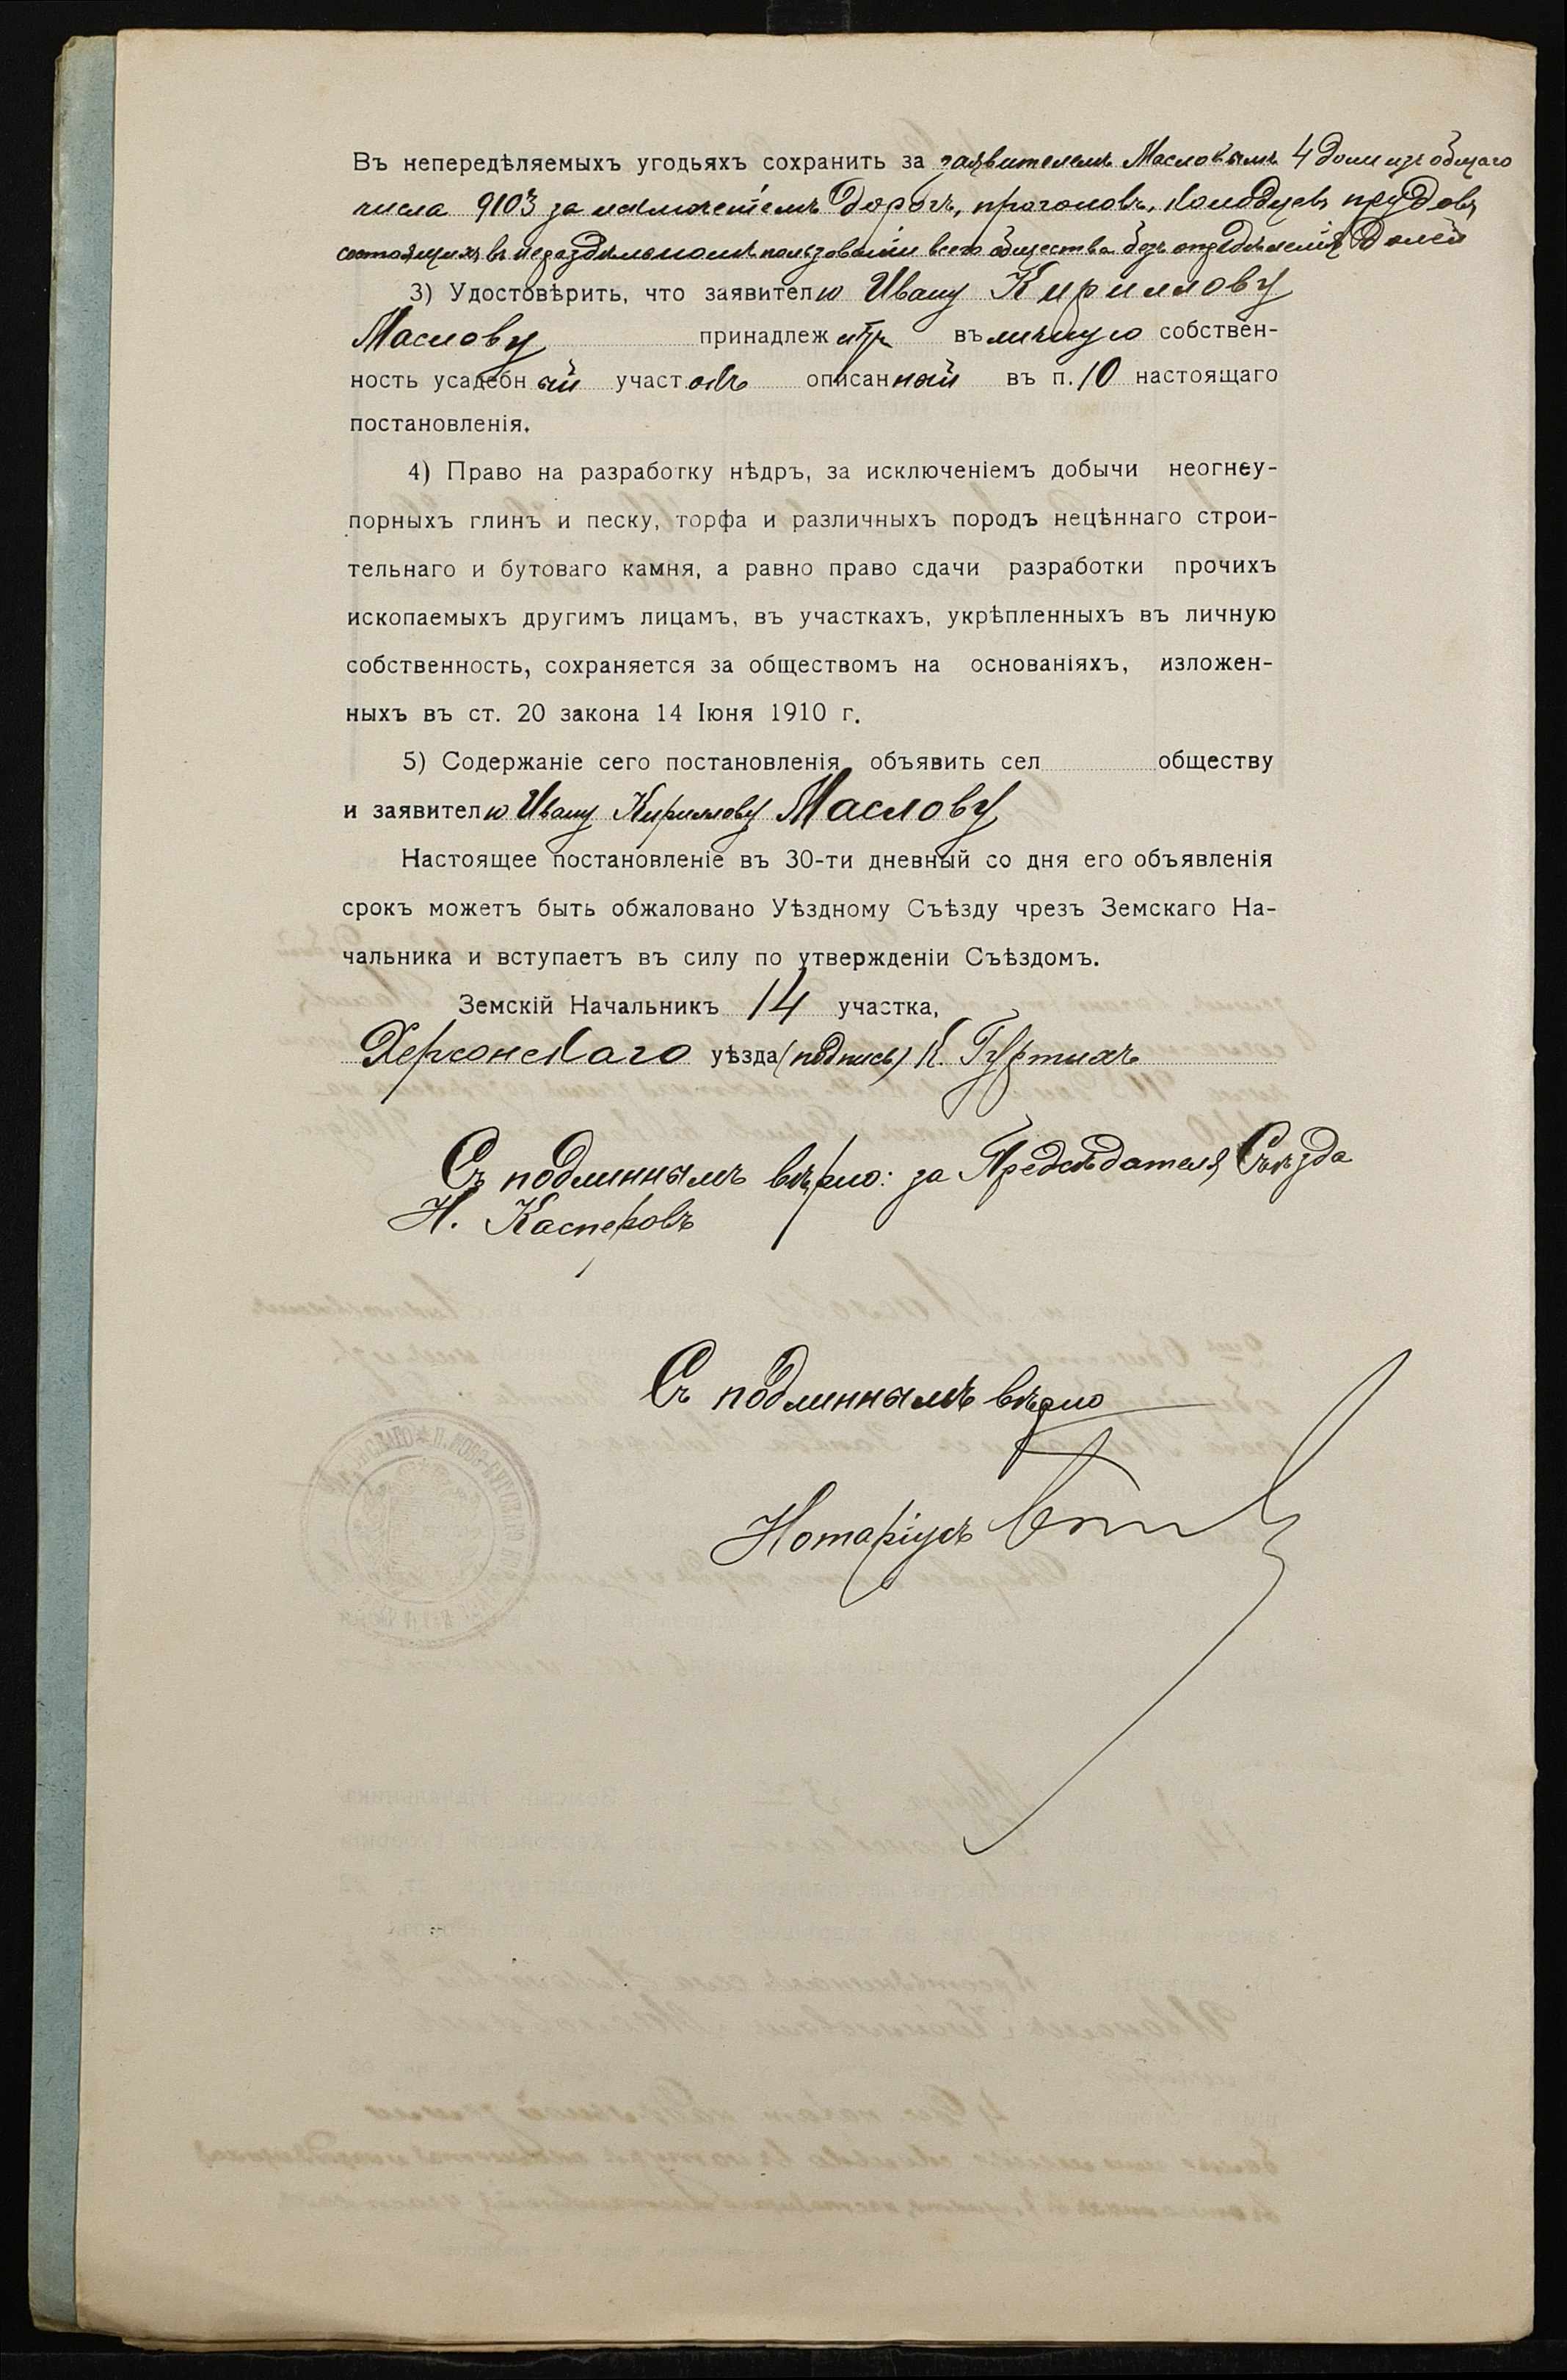 Въ непередѣляемыхъ угодьяхъ сохранить за заявителемъ Масловымъ 4 доли изъ общаго
числа 9103 за исключеніемъ дорогъ, прогоновъ, колодцевъ, прудовъ,
состоящихъ въ нераздѣльномъ пользованіи всего общества безъ опредѣленія долей
3) Удостовѣрить, что заявителю Ивану Кириллову
Маслову принадлежитъ въ личную собствен-
ность усадебный участокъ описанный въ п. 10 настоящаго
постановленія.
4) Право на разработку нѣдръ, за исключеніемъ добычи неогнеу-
порныхъ глинъ и песку, торфа и различныхъ породъ нецѣннаго строи-
тельнаго и бутоваго камня, а равно право сдачи разработки прочихъ
ископаемыхъ другимъ лицамъ, въ участкахъ, укрѣпленныхъ въ личную
собственность, сохраняется за обществомъ на основаніяхъ, изложен-
ныхъ въ ст. 20 закона 14 Іюня 1910 г.
5) Содержаніе сего постановленія объявить сел обществу
и заявителю Ивану Кириллову Маслову
Настоящее постановленіе въ 30-ти дневный со дня его объявленія
срокъ можетъ быть обжаловано Уѣздному Съѣзду чрезъ Земскаго На-
чальника и вступаетъ въ силу по утвержденіи Съѣздомъ.
Земскій Начальникъ 14 участка,
Херсонскаго уѣзда (подпись) К.
Съ подлиннымъ вѣрно: за Предсѣдателя Съѣзда
Н. Касперовъ
Съ подлиннымъ вѣрно
Нотаріусъ